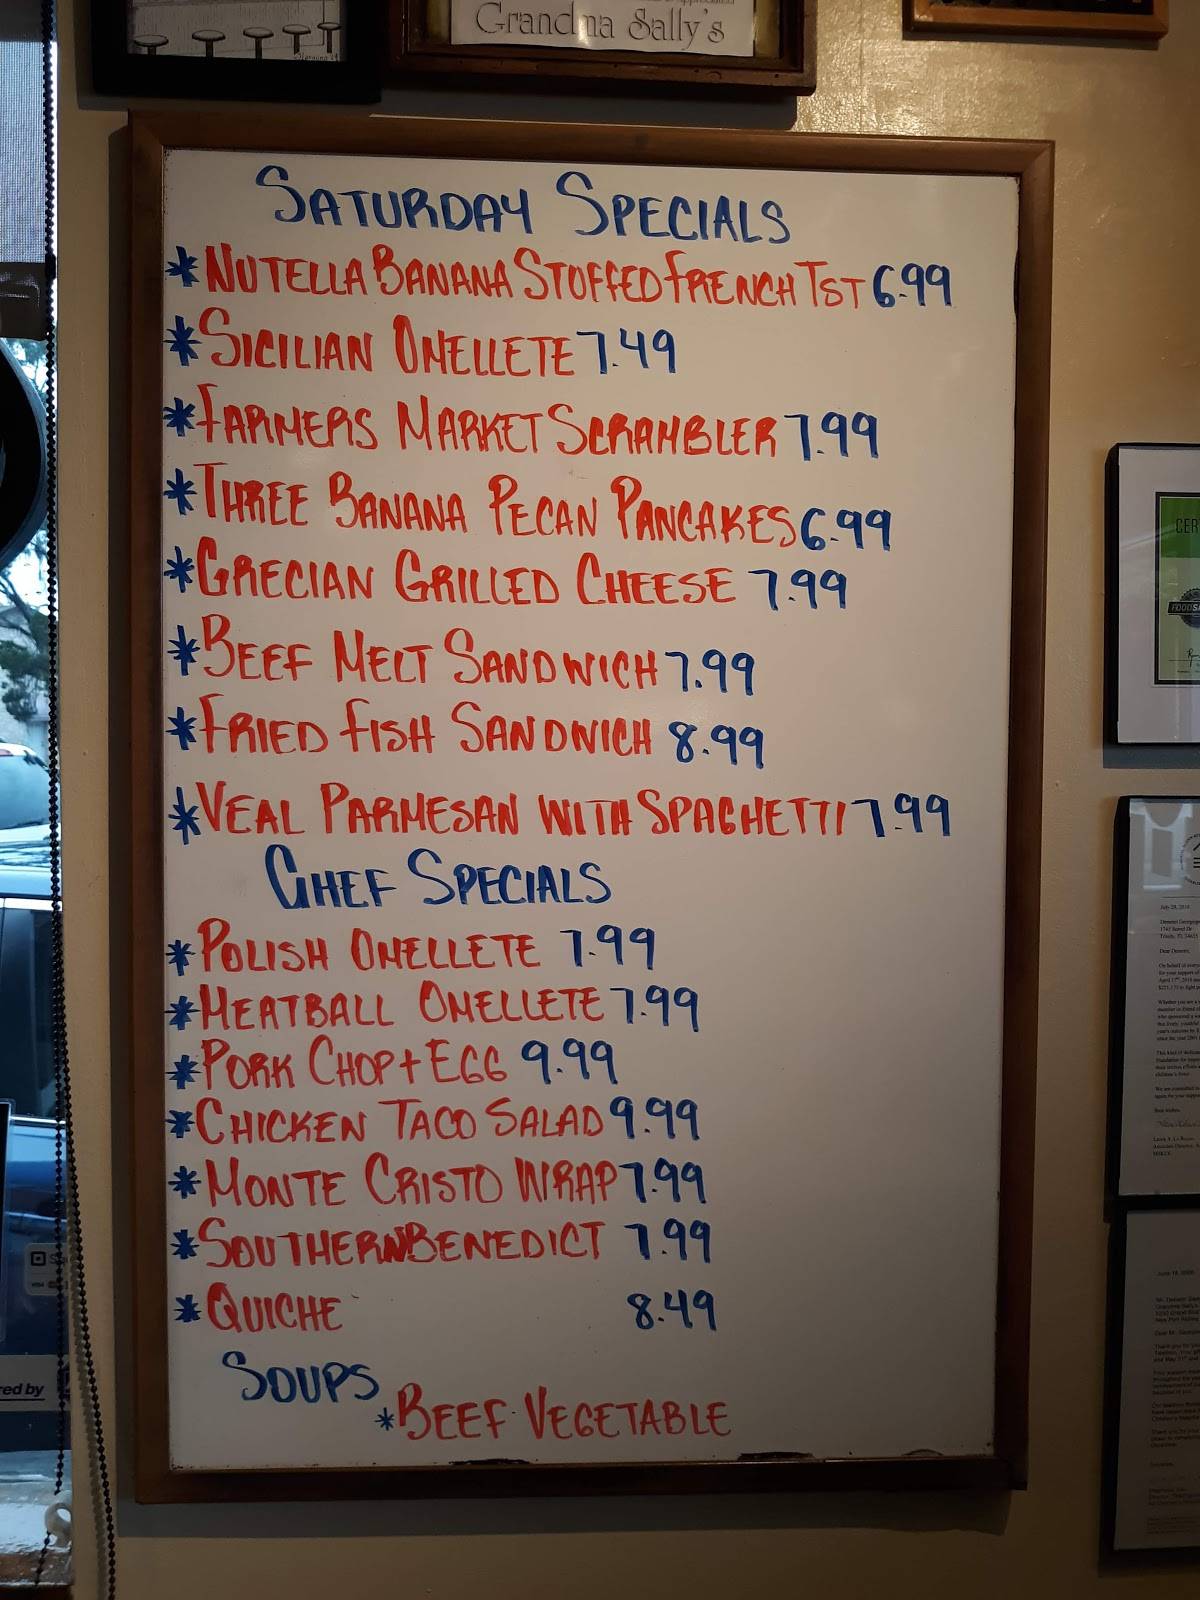 Grandma Sally's
SATURDAY SPECIALS
*NUTELLA BANANA STOFFED FRENCH TST 6.99
*SICILIAN OMELLETE 7.49
*FARMERS MARKET SCRAMBLER 7.99
*THREE BANANA PECAN PANCAKES 6.99
*GRECIAN GRILLED CHEESE 7.99
*BEEF MELT SANDWICH 7.99
*FRIED FISH SANDWICH 8.99
*VEAL PARMESAN WITH SPAGHETTI 7.99
CHEF SPECIALS
*POLISH OMELLETE 7.99
*MEATBALL OMELLETE 7.99
*PORK CHOP + EGG 9.99
*CHICKEN TACO SALAD 9.99
*MONTE CRISTO WRAP 7.99
*SOUTHERN BENEDICT 7.99
*QUICHE 8.49
SOUPS
*BEEF VEGETABLE
CER
July 28, 2016
June 14, 2006
ed by
VISA